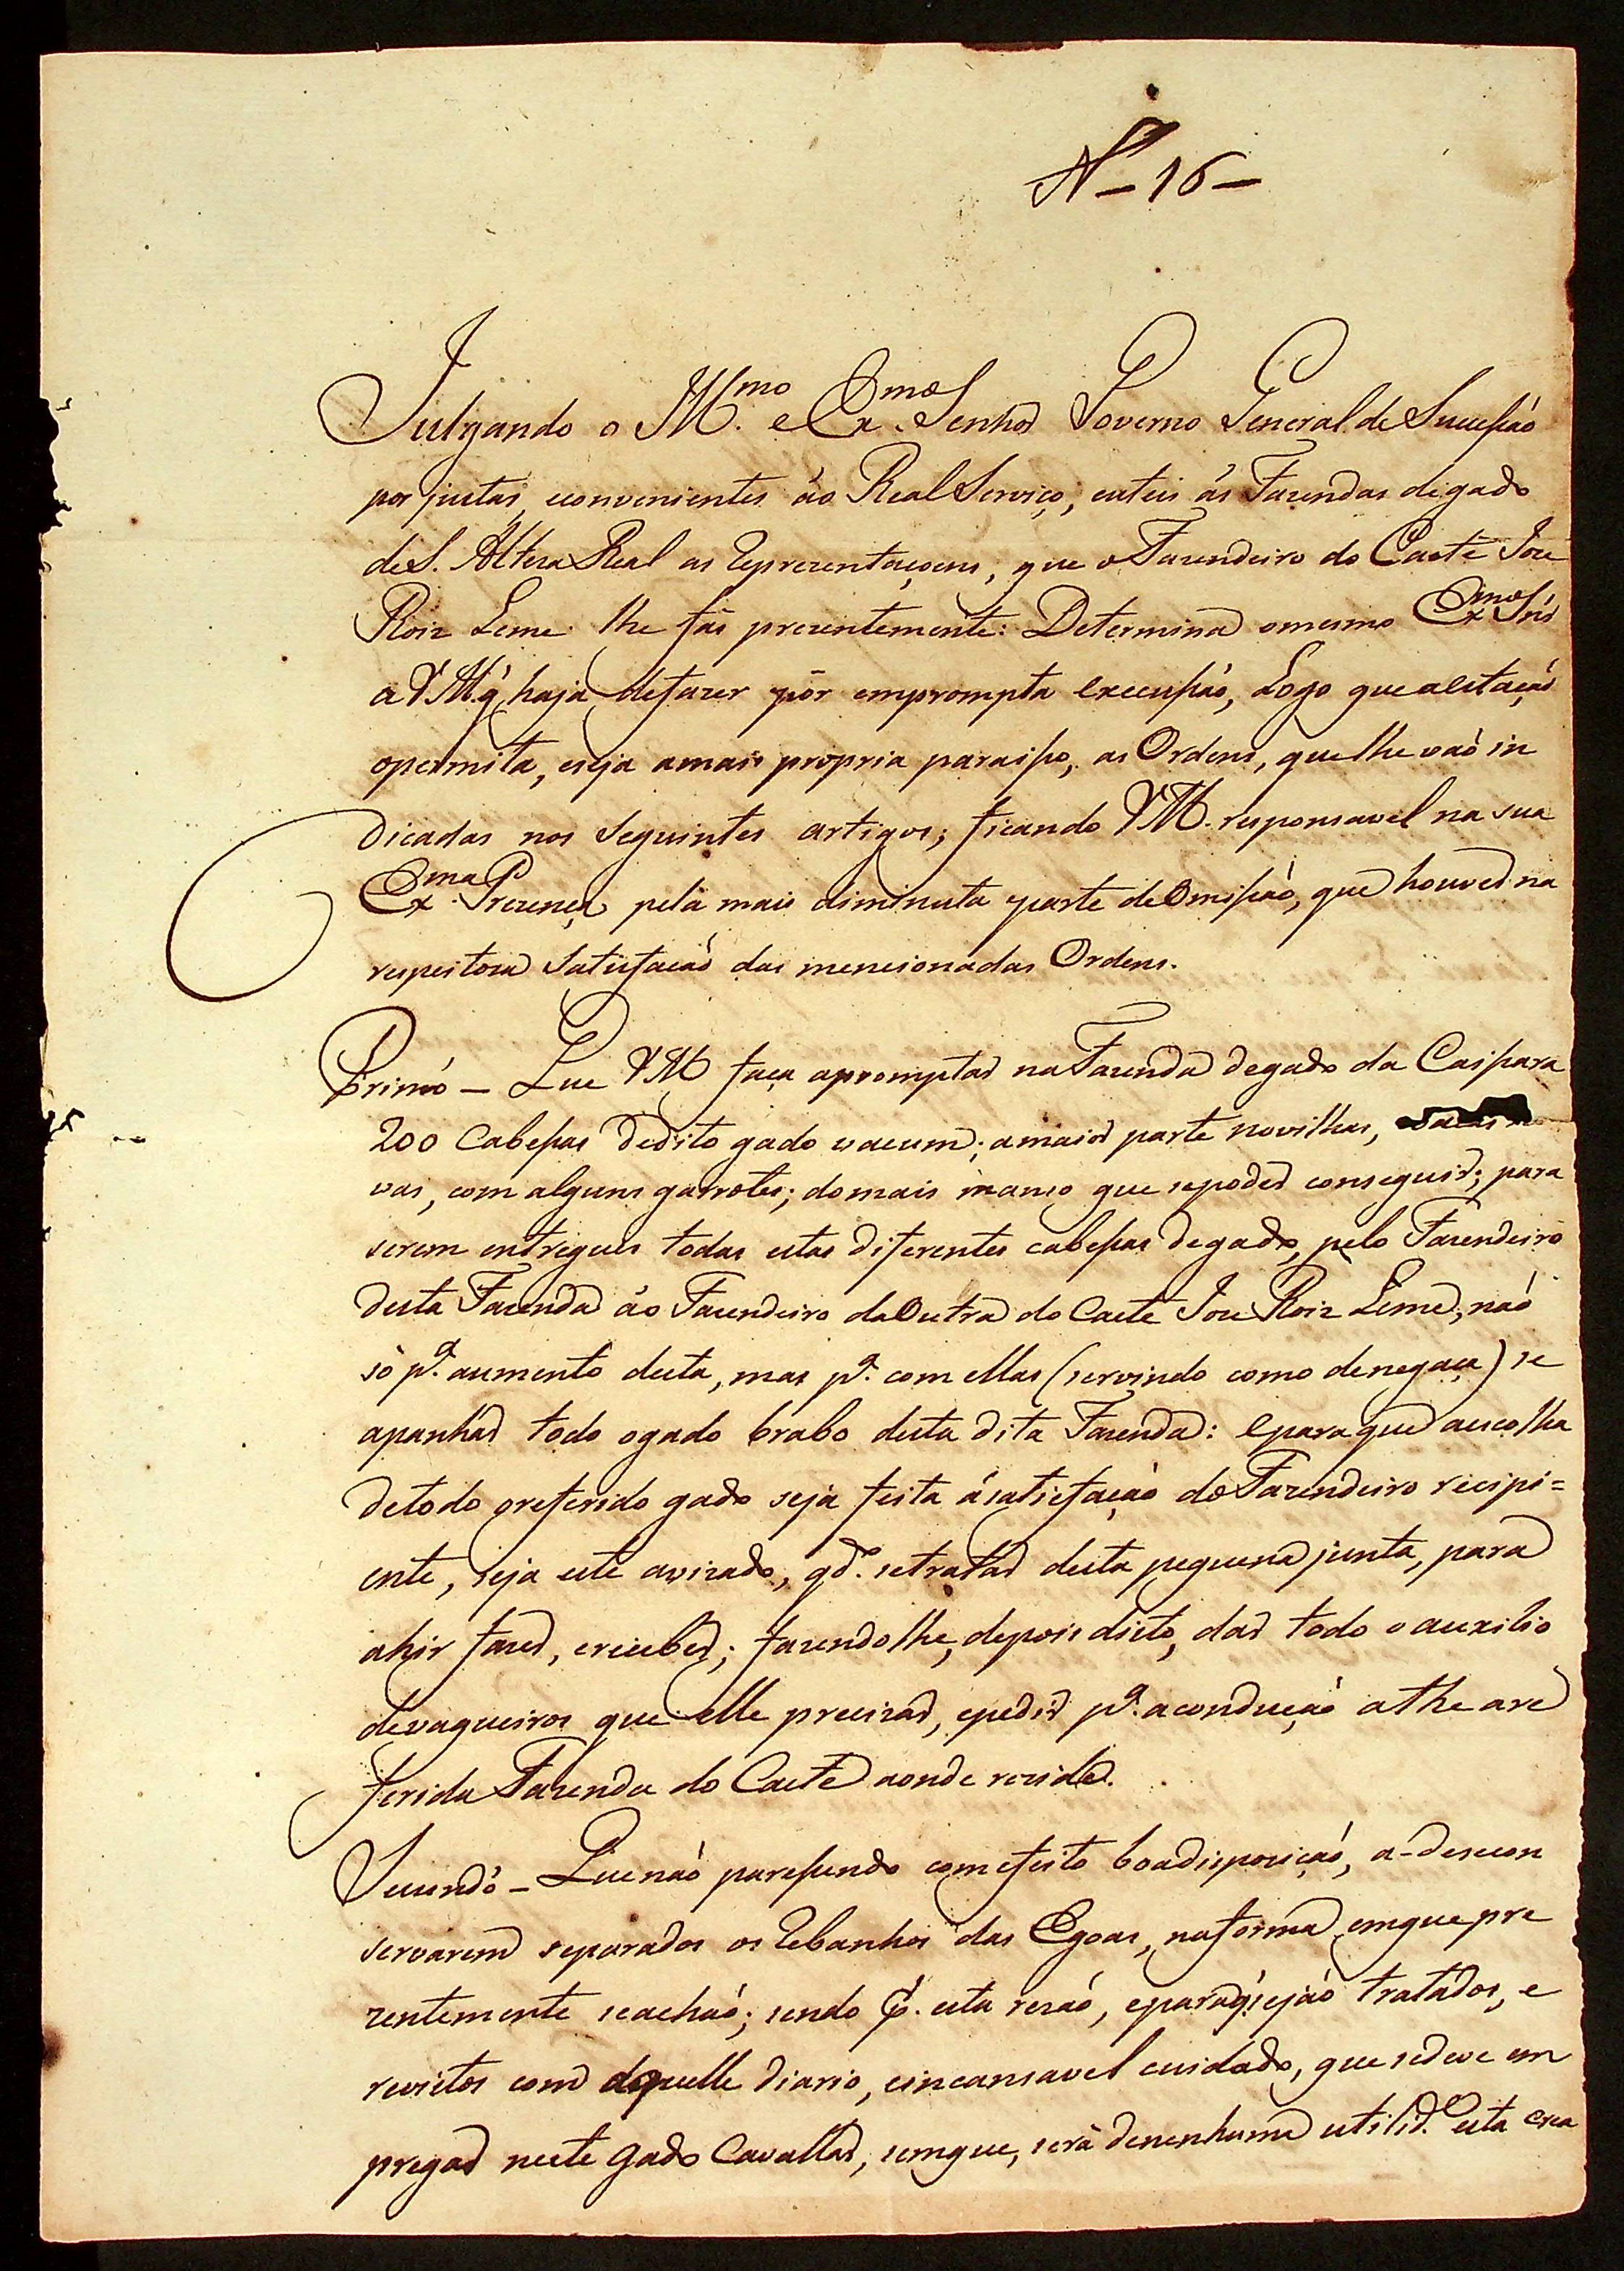 N.º – 16 –
Julgando o Ill.mo e Ex.mo Senhor Governo General de Sucessão
por justas, econvenientes áo Real Serviço, euteis ás Fazendas degado
deS. Alteza Real as Reprezentaçoens, que oFazendeiro do Caeté Joze
Roiz Leme lhe fás prezentemente: Determina omesmo Ex.mo Snr
a VM. q̃ haja defazer pôr emprompta execussão, Logo que aestação
opermita, eseja amais propria paraisso, as Ordens, quelhe vaõ in
dicadas nos Seguintes artigos; ficando VM. responsavel na sua
Ex.ma Prezença pela mais diminuta parte deOmissão, que houver na
respeitoza Satisfação das mencionadas Ordens.
Primó – Que VM faça apromptar naFazenda degado da Caissara
200 Cabessas dedito gado vacum; amaior parte novilhas, vacas no
vas, com alguns garrotes; domais manso que sepoder conseguir; para
serem entregues todas estas diferentes cabessas degado, pelo Fazendeiro
desta Fazenda áo Fazendeiro daOutra do Caeté Joze Roiz Leme, naõ
só p.ª aumento desta, mas p.ª com ellas (servindo como denegaça) se
apanhar todo ogado brabo desta dita Fazenda: Eparaque aescolha
detodo oreferido gado seja feita ásatisfação doFazendeiro recipi=
ente, seja este avizado, qd.º setratar desta pequena junta, para
ahir fazer, ereceber; fazendolhe, depois disto, dar todo o auxilio
devaqueiros que elle precizar, epedir p.ª aconducção athe are
ferida Fazenda do Caeté aonde rezide.
Secundó – Quenaõ paressendo comefeito boadispozição, a-deseon
servarem separados os Rebanhos das Egoas, naforma emque pre
zentemente seachaó; sendo p̃. esta rezaó, eparaq̃ sejaó tratados, e
revistos com daquelle diario, eincansavel cuidado, que sedeve em
pregar neste Gado Cavallar, semque, será denenhuma utilid.e esta crea